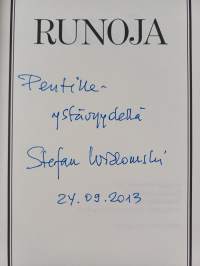 RUNOJA
Pentille-
ystävyydellä
Stefan Widomski
24.09.2013